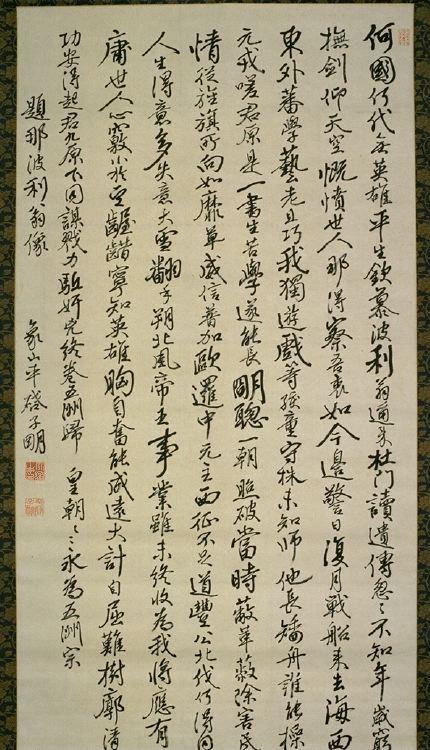 何國何代無英雄平生欽慕波利翁邇來杜門讀遺傳忽〻不知年歲窮
撫劍仰天空慨憤世人那得察吾衷如今邊警日復月戰船来去海西
東外蕃學藝老且巧我獨遊戲等孩童守株未知師他長矮舟誰能操
元戎嗟君原是一書生苦學遂能長明聰一朝照破當時蔽革蔽除害民
情從旌旗所向如靡草威信普加歐邏中元主西征不足道豐公北伐何得同
人生得意多失意大雪翻手朔北風帝王事業雖未終收為我將應有
庸世人心竅小於豆齷齪寧知英雄胸自奮能成遠大計自屈難樹廓清
功安得起君九原下同謀戮力驅奸兇終卷五洲歸 皇朝〻〻永為五洲宗
題那波利翁像 象山平啓子明